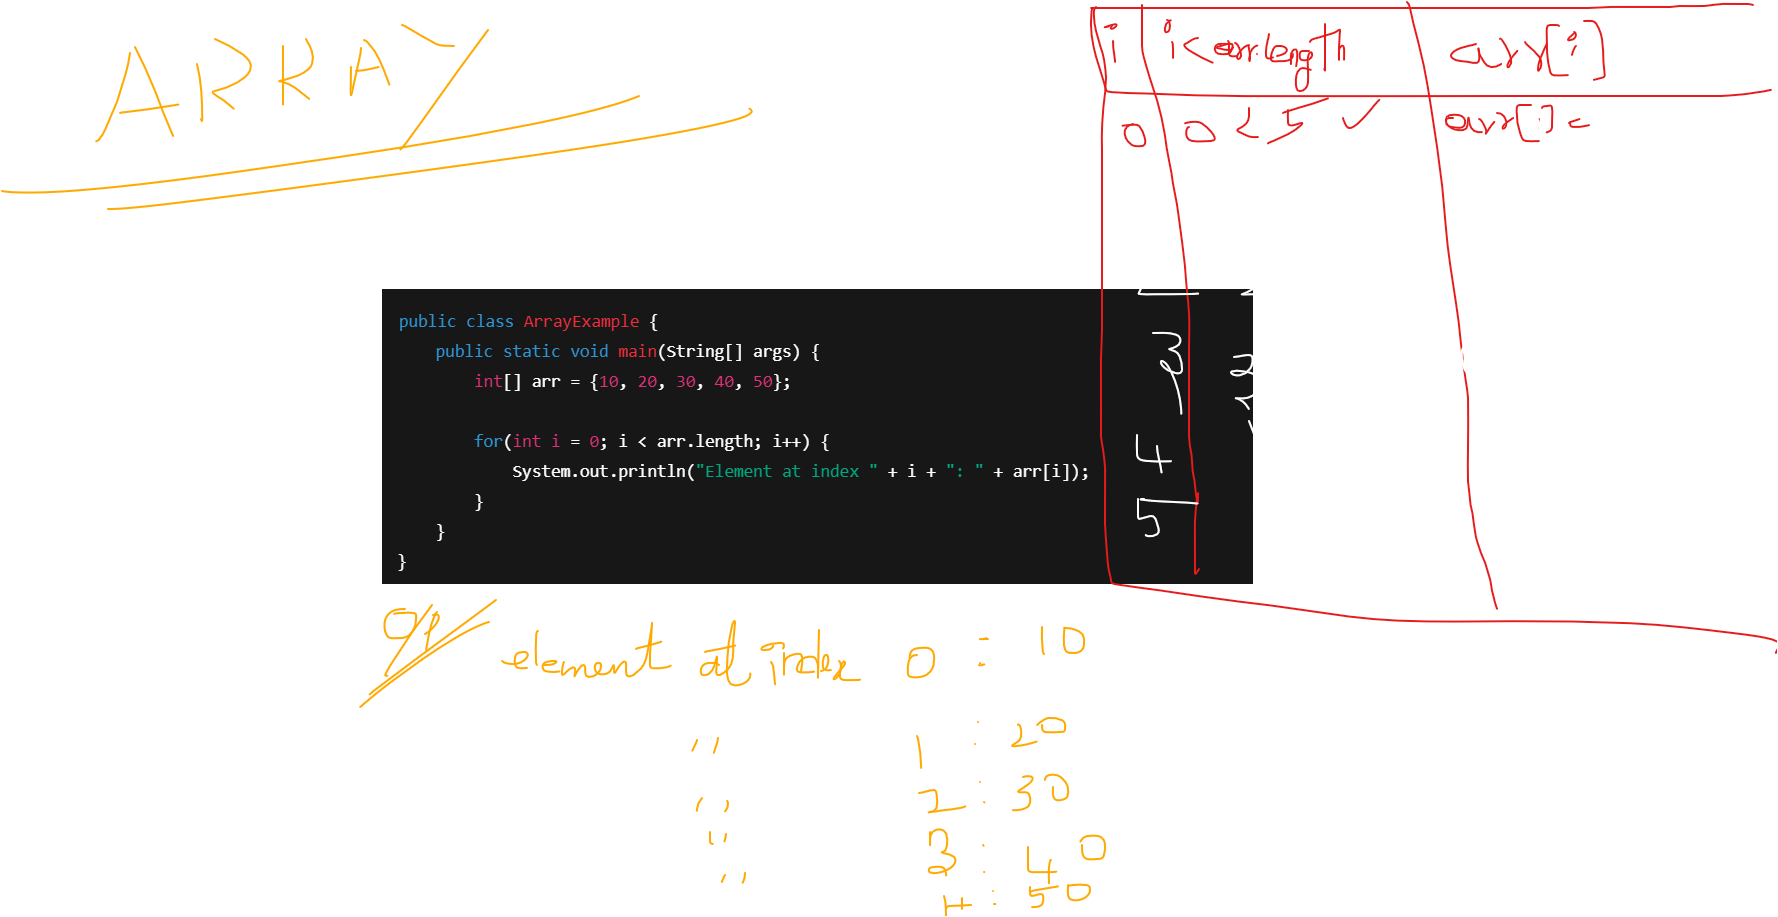 ARRAY
i i<arr.length arr[i]
0 0<5 ✓ arr[]=
public class ArrayExample {
public static void main(String[] args) {
int[] arr = {10, 20, 30, 40, 50};
for(int i = 0; i < arr.length; i++) {
System.out.println("Element at index " + i + ": " + arr[i]);
}
}
}
3
2
4
5
O/P
element at index 0 : 10
" 1 : 20
" 2 : 30
" 3 : 40
" 4 : 50